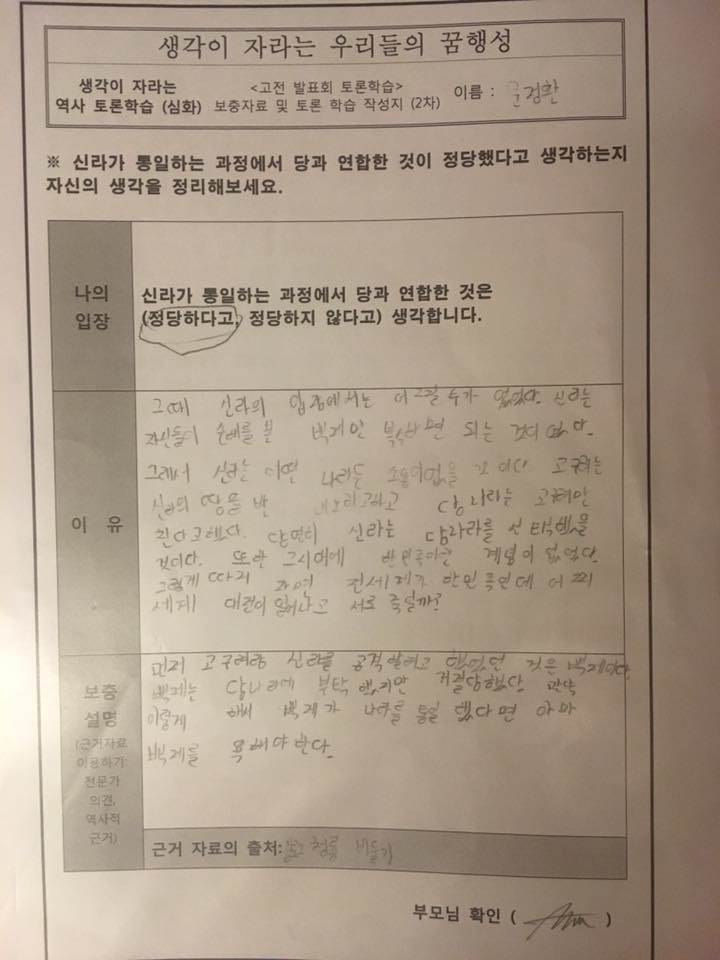 생각이 자라는 우리들의 꿈행성
생각이 자라는
역사 토론학습 (심화)
<고전 발표회 토론학습>
보충자료 및 토론 학습 작성지 (2차)
이름 :
※ 신라가 통일하는 과정에서 당과 연합한 것이 정당했다고 생각하는지
자신의 생각을 정리해보세요.
나의
입장
신라가 통일하는 과정에서 당과 연합한 것은
(정당하다고, 정당하지 않다고) 생각합니다.
이 유
그때 신라의 입장에서는 어쩔 수가 없었다. 신라는
자신들이 손해를 본 백제만 복수하면 되는 것이 었다.
그래서 신라는 어떤 나라든 소용이없을 것 이다 고구려는
신라의 땅을 반 당나라는 고구려만
당연히 신라는 당나라를 선택했을
것이다. 또한 그시대에 한민족이란 개념이 없었다.
그렇게 따지 면 전세계가 한민족인데 어찌
세계 대전이 일어나고 서로 죽일까?
보충
설명
(근거자료
이용하기:
전문가
의견,
역사적
근거)
먼저 고구려랑 신라를 공격할려고 했었던 것은 백제이다.
백제는 당나라에 부탁 했지만 거절당했다. 만약
이렇게 해서 백제가 나라를 통일 했다면 아마
백제를 욕해야 한다.
근거 자료의 출처:
부모님 확인 ( )